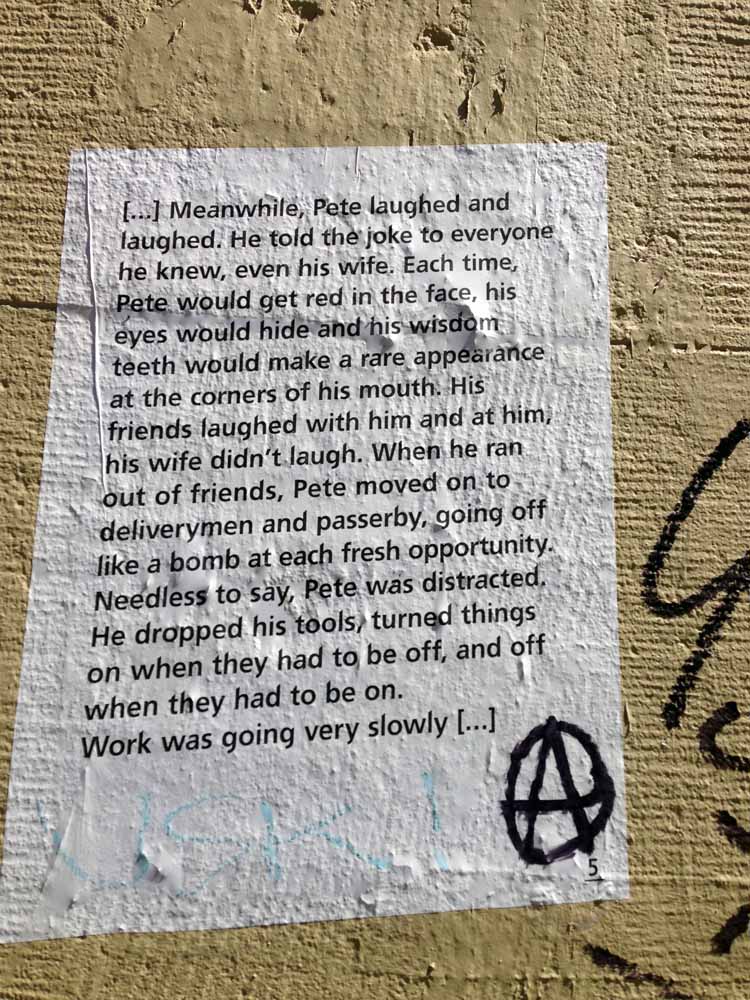 [...] Meanwhile, Pete laughed and
laughed. He told the joke to everyone
he knew, even his wife. Each time,
Pete would get red in the face, his
eyes would hide and his wisdom
teeth would make a rare appearance
at the corners of his mouth. His
friends laughed with him and at him,
his wife didn't laugh. When he ran
out of friends, Pete moved on to
deliverymen and passerby, going off
like a bomb at each fresh opportunity.
Needless to say, Pete was distracted.
He dropped his tools, turned things
on when they had to be off, and off
when they had to be on.
Work was going very slowly [...]
A
5